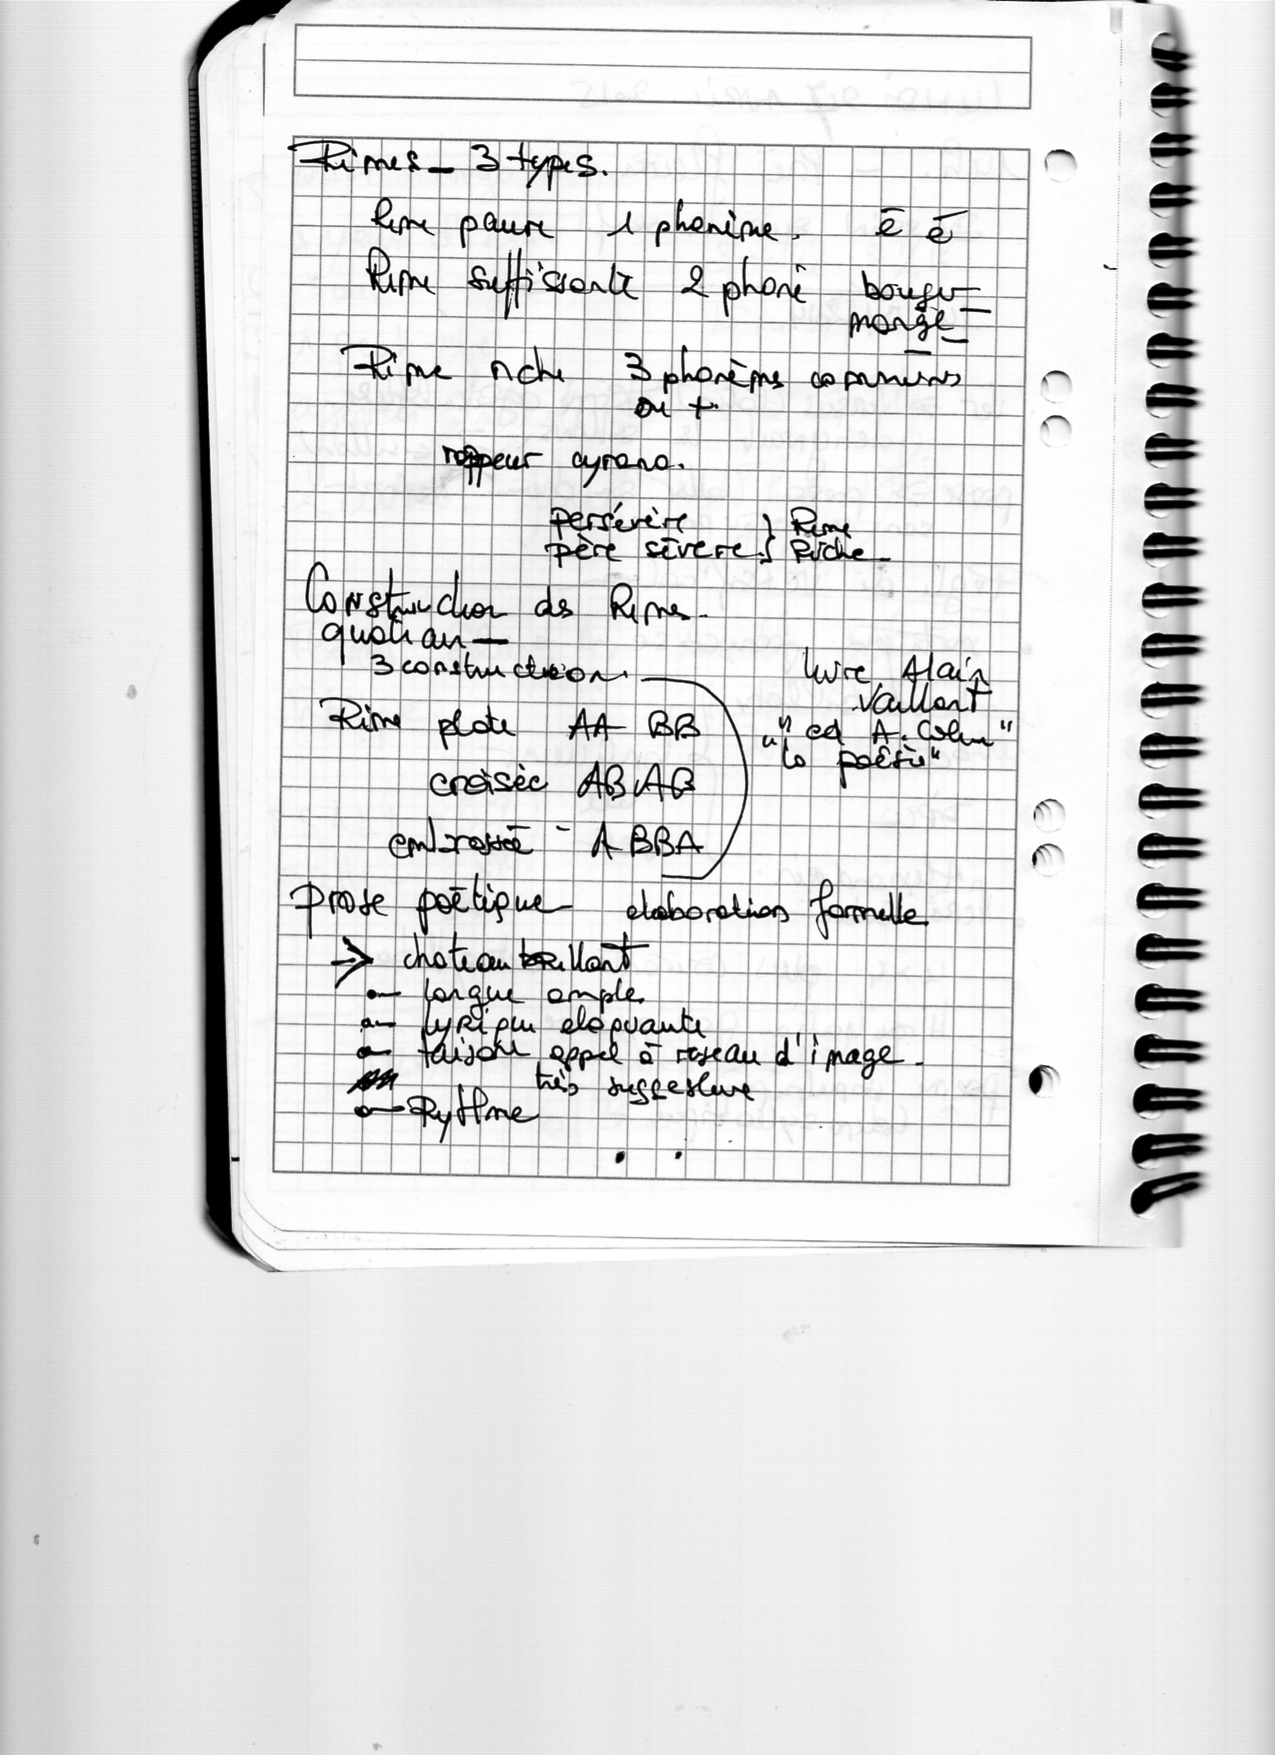 Rimes - 3 types.
Rime pauvre 1 phonème. é é
Rime suffisante 2 phonè bouger
mangé
Rime riche 3 phonèmes communs
ou +
rappeur cyrano.
persévère } Rime
père sévère } Riche.
Construction des Rimes.
quatrain -
3 construction.
livre Alain
Vaillant
Rime plate AA BB
"" ed A. Colin"
"la poésie"
croisée ABAB
embrassée - ABBA
prose poétique - elaboration formelle
→ chateaubrillant
- langue ample.
- lyrique eloquante
- faisant appel à reseau d'image.
très suggestive
- Rythme